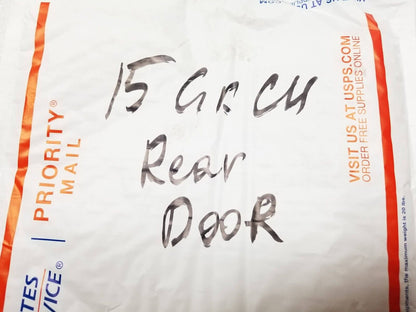 15 GR CH
Rear
DOOR
PRIORITY®
MAIL
VISIT US AT USPS.COM
ORDER FREE SUPPLIES ONLINE
TES
VICE®
ments, the maximum weight is 20 lbs.